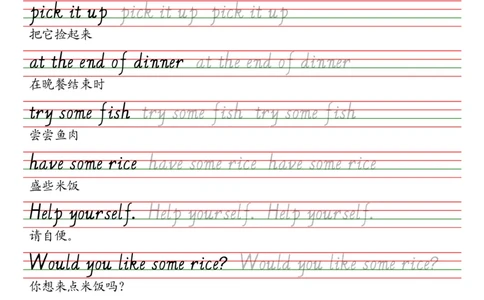 pick it up pick it up pick it up
把它捡起来
at the end of dinner at the end of dinner
在晚餐结束时
try some fish try some fish try some fish
尝尝鱼肉
have some rice have some rice have some rice
盛些米饭
Help yourself. Help yourself. Help yourself.
请自便。
Would you like some rice? Would you like some rice?
你想来点米饭吗?